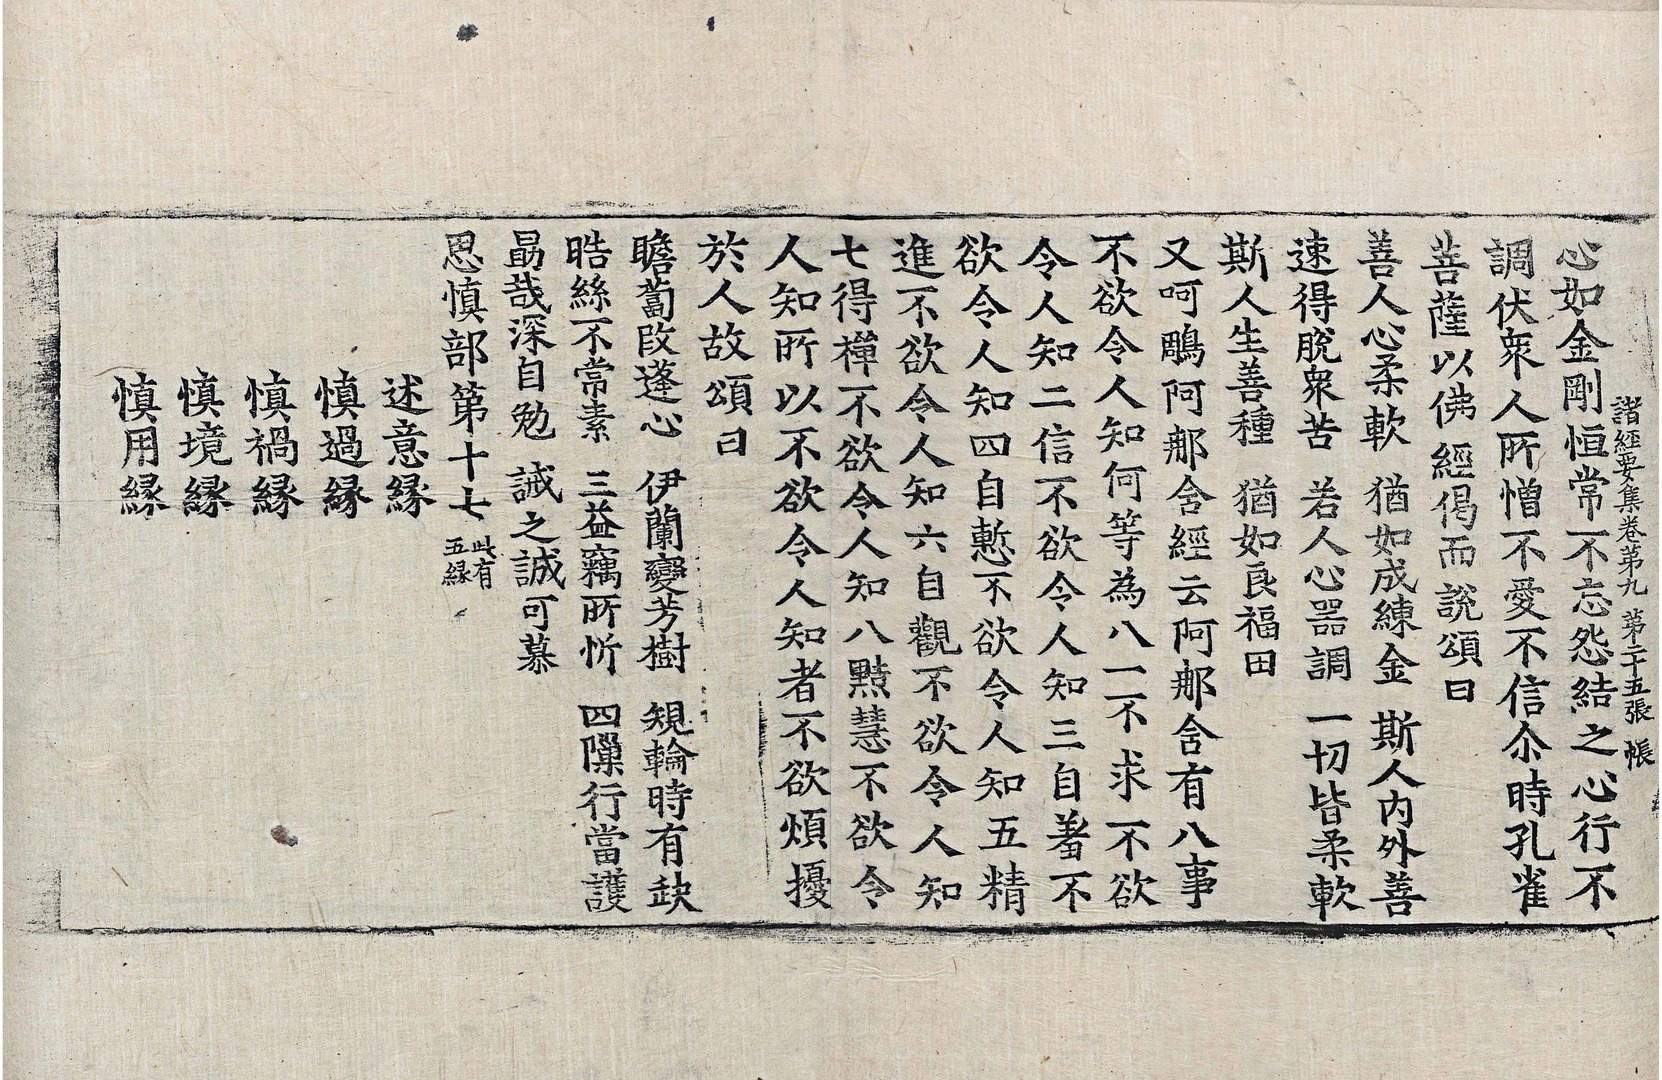 諸經要集卷第九 第二十五張 帳
心如金剛恒常不忘怨結之心行不
調伏衆人所憎不愛不信尒時孔雀
菩薩以佛經偈而說頌曰
善人心柔軟 猶如成練金 斯人內外善
速得脫衆苦 若人心器調 一切皆柔軟
斯人生善種 猶如良福田
又呵鵰阿郍含經云阿郍含有八事
不欲令人知何等為八一不求不欲
令人知二信不欲令人知三自羞不
欲令人知四自慙不欲令人知五精
進不欲令人知六自觀不欲令人知
七得禪不欲令人知八黠慧不欲令
人知所以不欲令人知者不欲煩擾
於人故頌曰
瞻蔔改蓬心 伊蘭變芳樹 規輪時有缺
晧絲不常素 三益竊所忻 四隟行當護
勗哉深自勉 誡之誠可慕
思慎部第十七 此有五緣
述意緣
慎過緣
慎禍緣
慎境緣
慎用緣